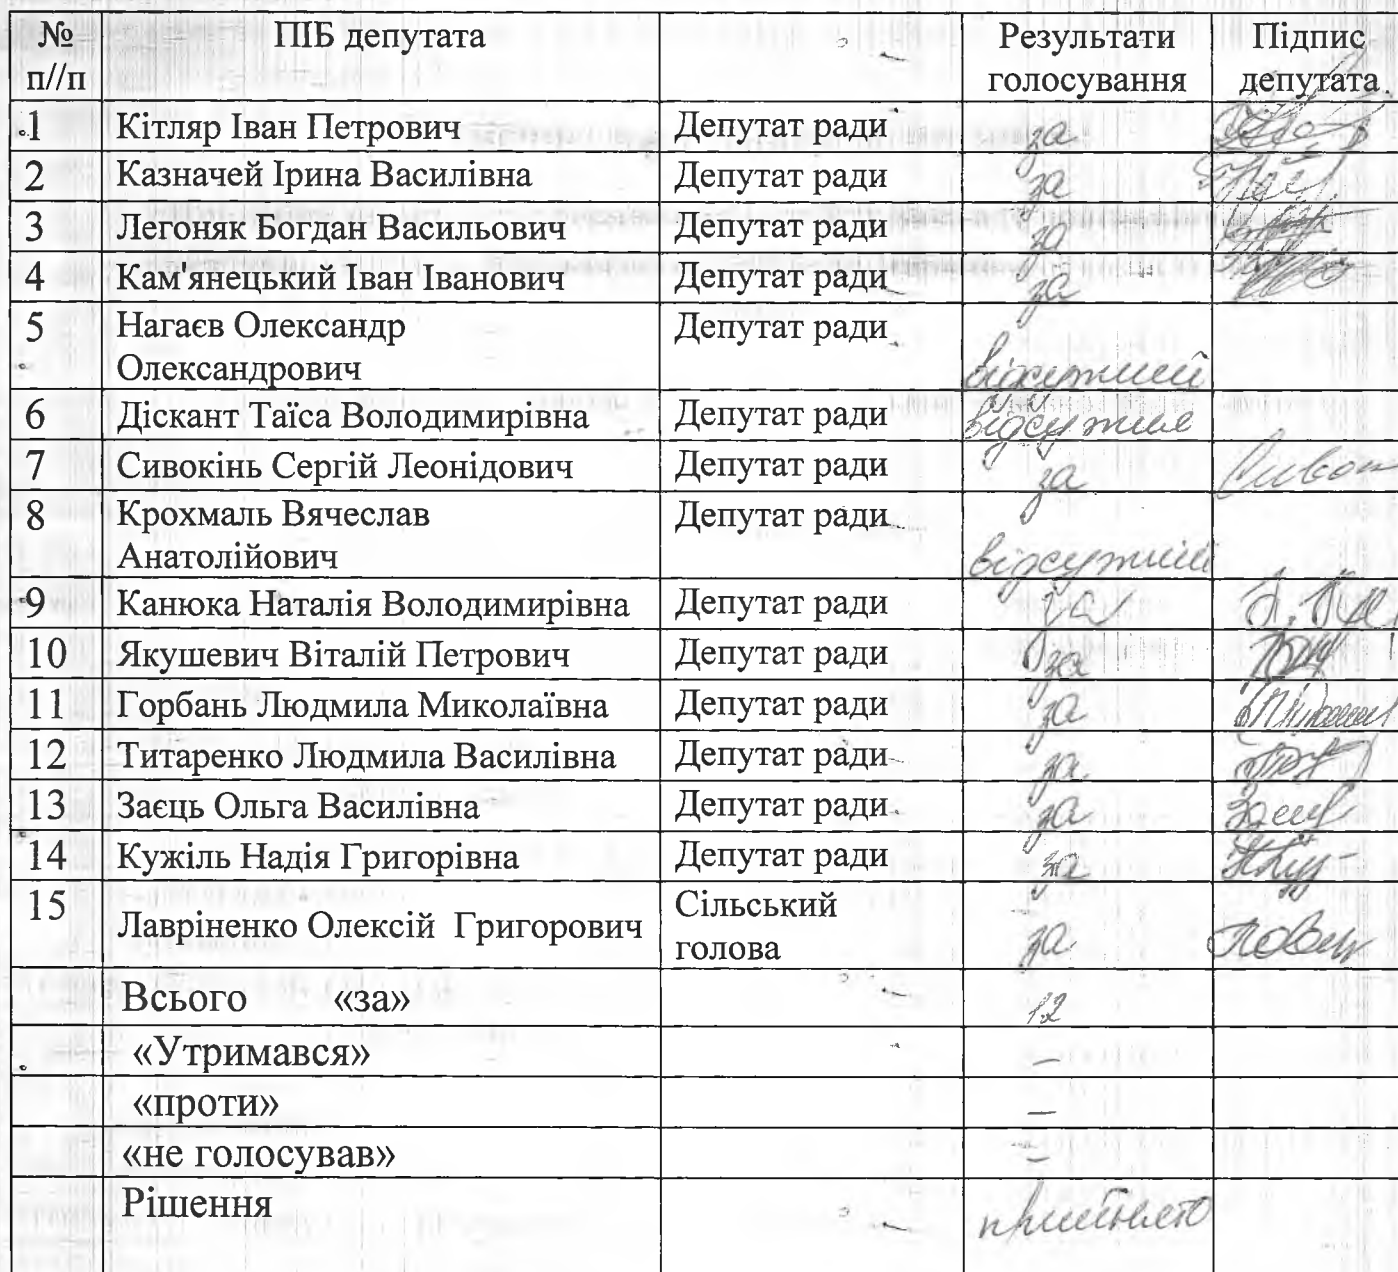 № ПІБ депутата Результати Підпис
п//п голосування депутата
1 Кітляр Іван Петрович Депутат ради за
2 Казначей Ірина Василівна Депутат ради за
3 Легоняк Богдан Васильович Депутат ради за
4 Кам янецький Іван Іванович Депутат ради за
5 Нагаєв Олександр Депутат ради
Олександрович відсутній
6 Діскант Таїса Володимирівна Депутат ради відсутня
7 Сивокінь Сергій Леонідович Депутат ради за
8 Крохмаль Вячеслав Депутат ради
Анатолійович відсутній
9 Канюка Наталія Володимирівна Депутат ради за
10 Якушевич Віталій Петрович Депутат ради за
11 Горбань Людмила Миколаївна Депутат ради за
12 Титаренко Людмила Василівна Депутат ради за
13 Заєць Ольга Василівна Депутат ради за
14 Кужіль Надія Григорівна Депутат ради за
15 Лавріненко Олексій Григорович Сільський
голова за
Всього «за» 12
«Утримався» –
«проти» –
«не голосував» –
Рішення прийнято